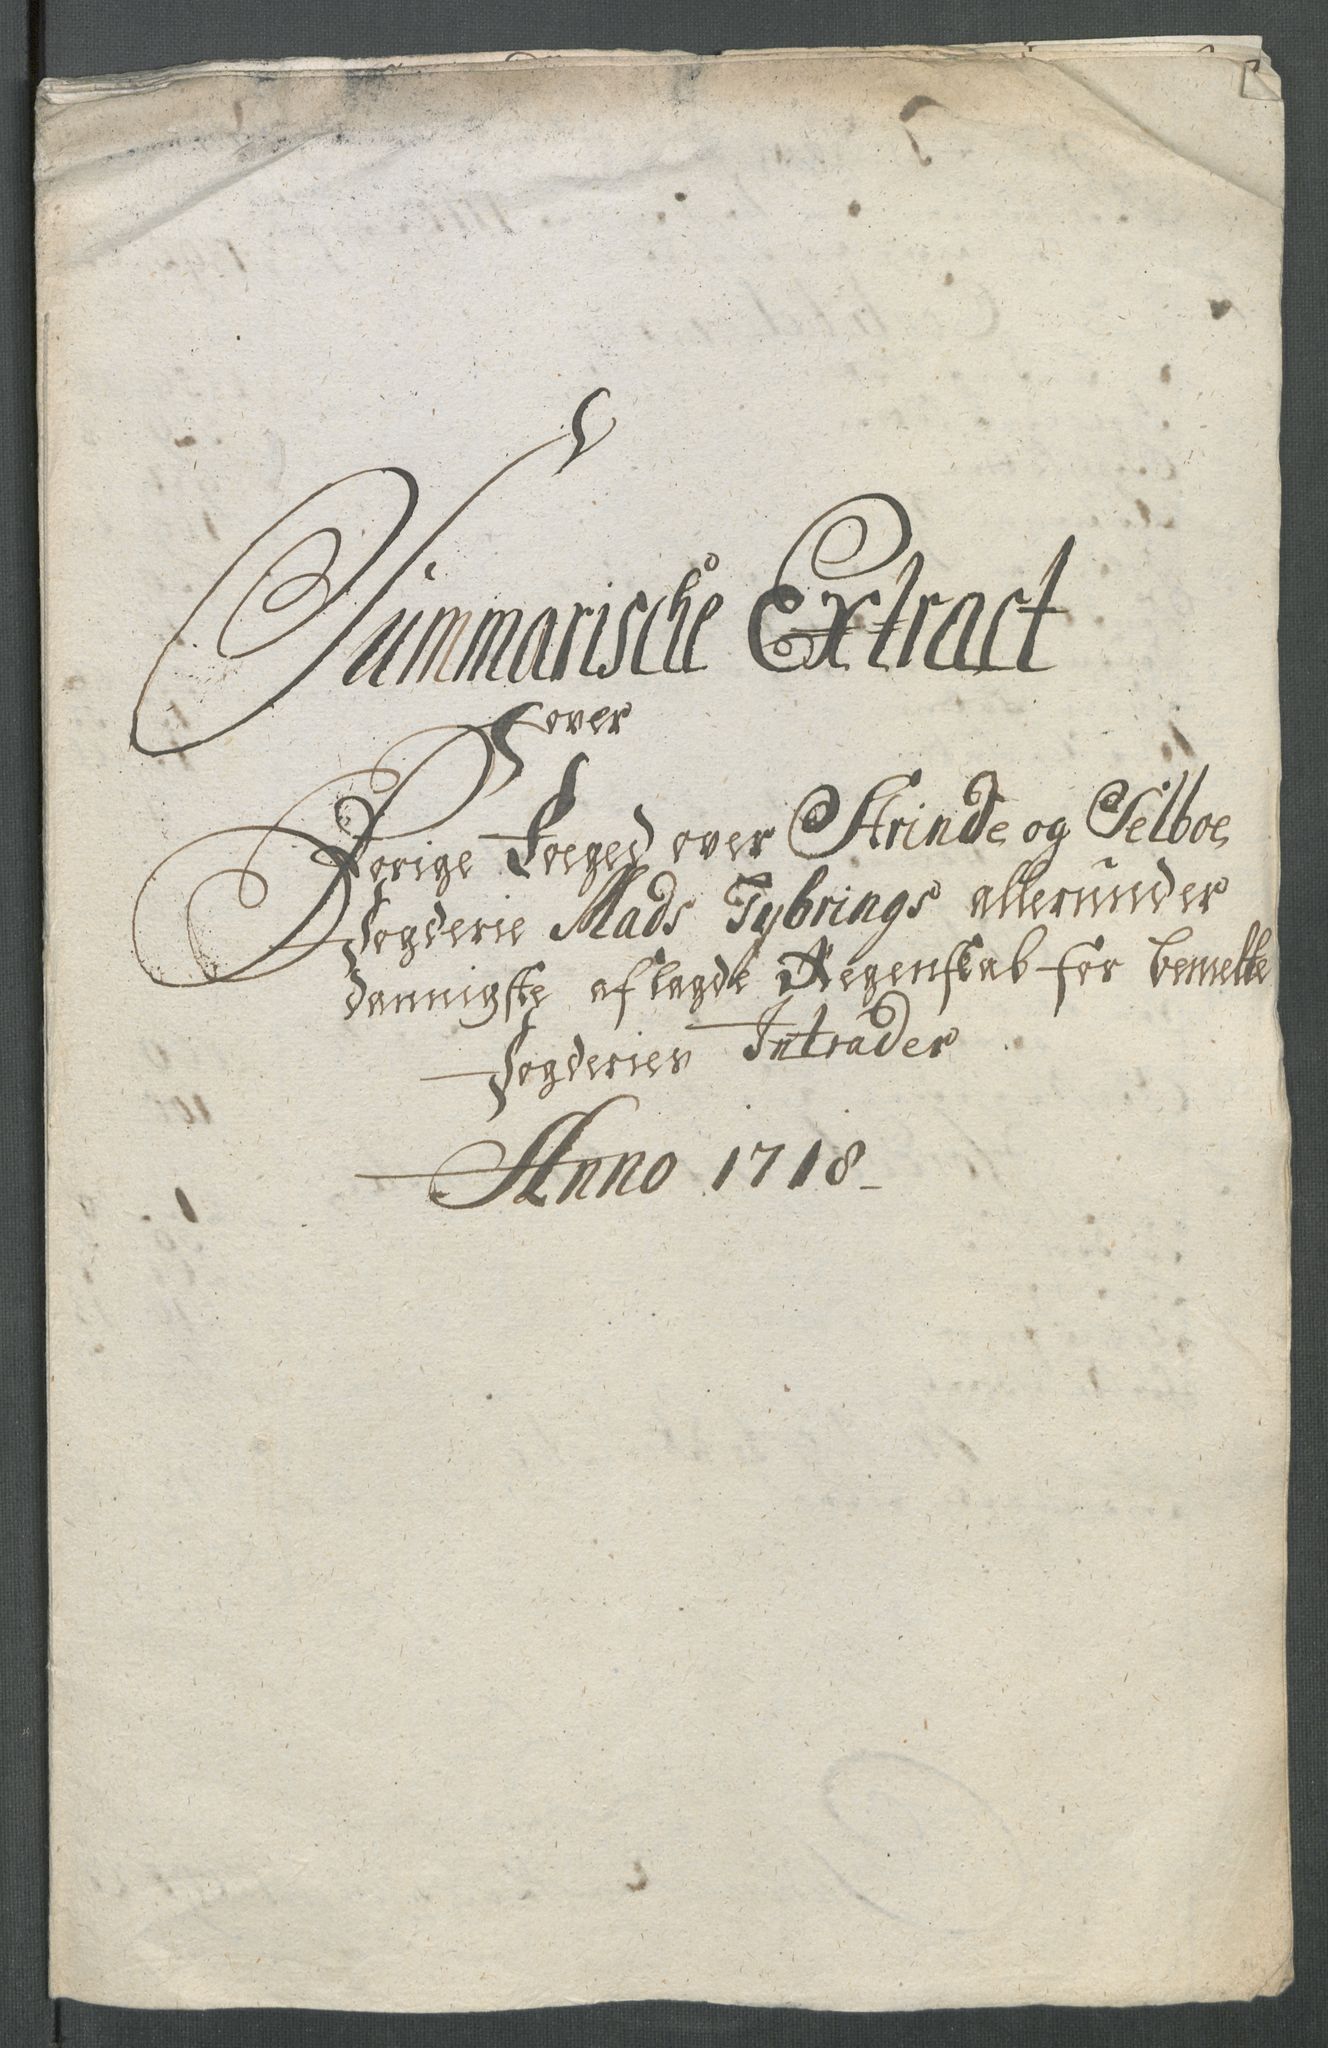 Summarische Extract
over
Forige Foeged over Strinde og Selboe
Fogderie Mads Tybrings allerunder
dannigste aflagde Regenskab for bemelte
Fogderies Intrader
Anno 1718